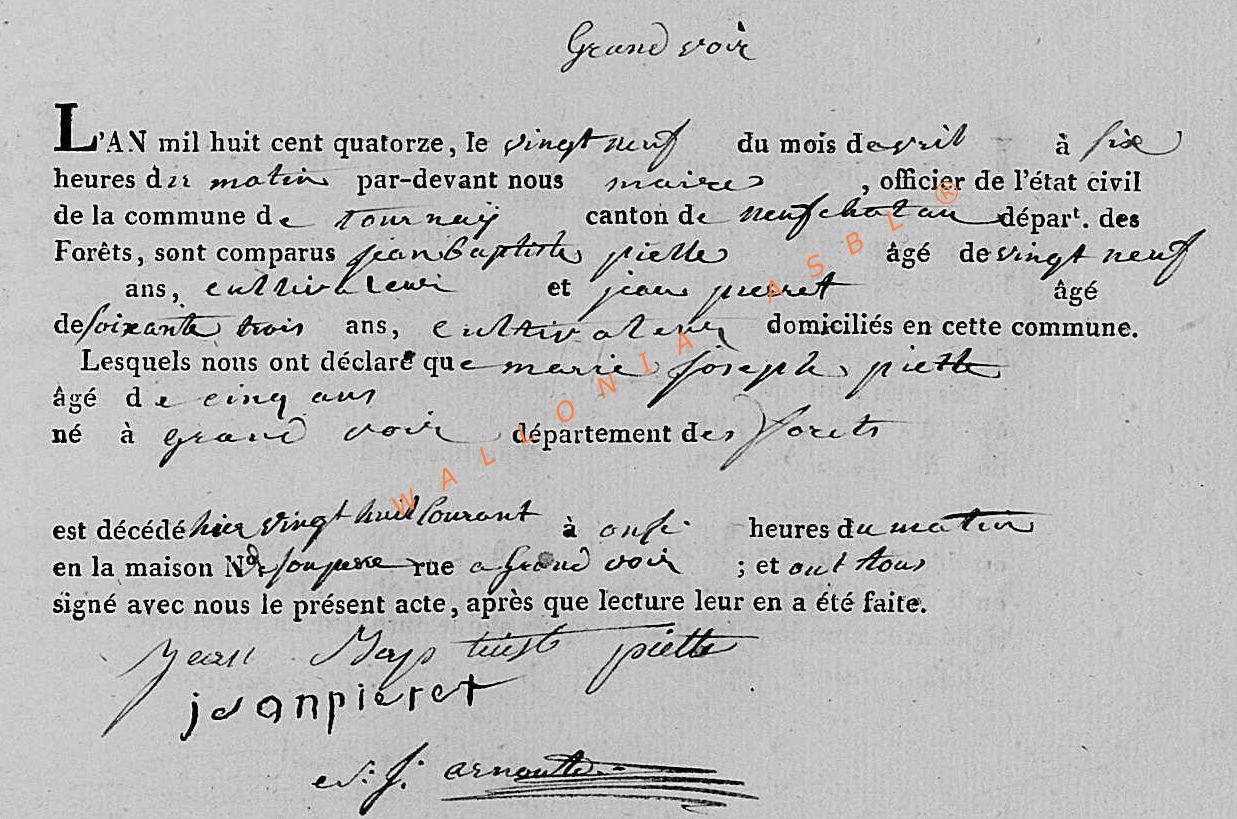 Grand voir
L'AN mil huit cent quatorze, le vingt neuf du mois d'avril à six
heures du matin par-devant nous maire, officier de l'état civil
de la commune de tournay canton de neufchatau départ. des
Forêts, sont comparus jean Baptiste piette âgé de vingt neuf
ans, cultivateur et jean pierret âgé
de soixante trois ans, cultivateur domiciliés en cette commune.
Lesquels nous ont déclaré que marie joseph piette
âgé de cinq ans
né à grand voir département des forets
est décédé hier vingt huit Courant à onse heures du matin
en la maison de son pere rue a Grand voir ; et ont tous
signé avec nous le présent acte, après que lecture leur en a été faite.
jean Baptiste piette
jeanpieret
arnoulde
WALLONIA ASBL ®